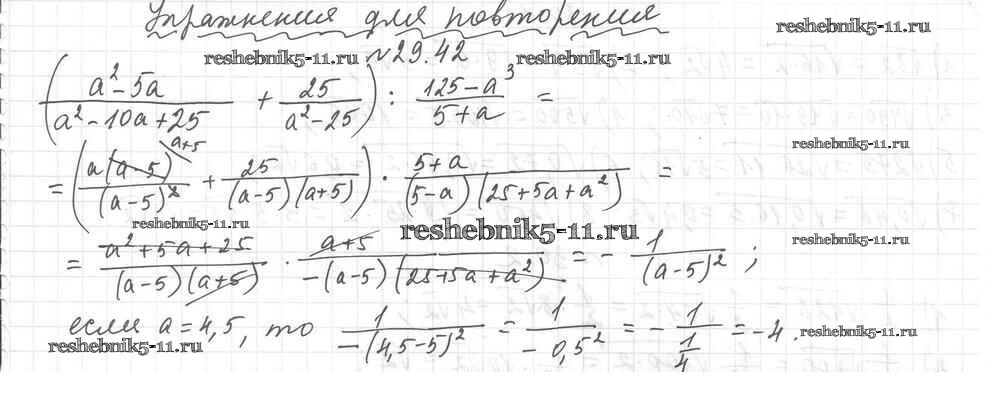 Упражнения для повторения
reshebnik5-11.ru
reshebnik5-11.ru №29.42 reshebnik5-11.ru
((a²-5a)/(a²-10a+25) + 25/(a²-25)) : (125-a³)/(5+a) =
reshebnik5-11.ru
= (a(a-5)^(a+5)/(a-5)² + 25/((a-5)(a+5))) · (5+a)/((5-a)(25+5a+a²)) =
reshebnik5-11.ru
reshebnik5-11.ru
reshebnik5-11.ru
= (a²+5a+25)/((a-5)(a+5)) · (a+5)/(-(a-5)(25+5a+a²)) = - 1/(a-5)² ;
если a=4,5, то 1/(-(4,5-5)²) = 1/(-0,5²) = - 1/(1/4) = -4.
reshebnik5-11.ru
reshebnik5-11.ru